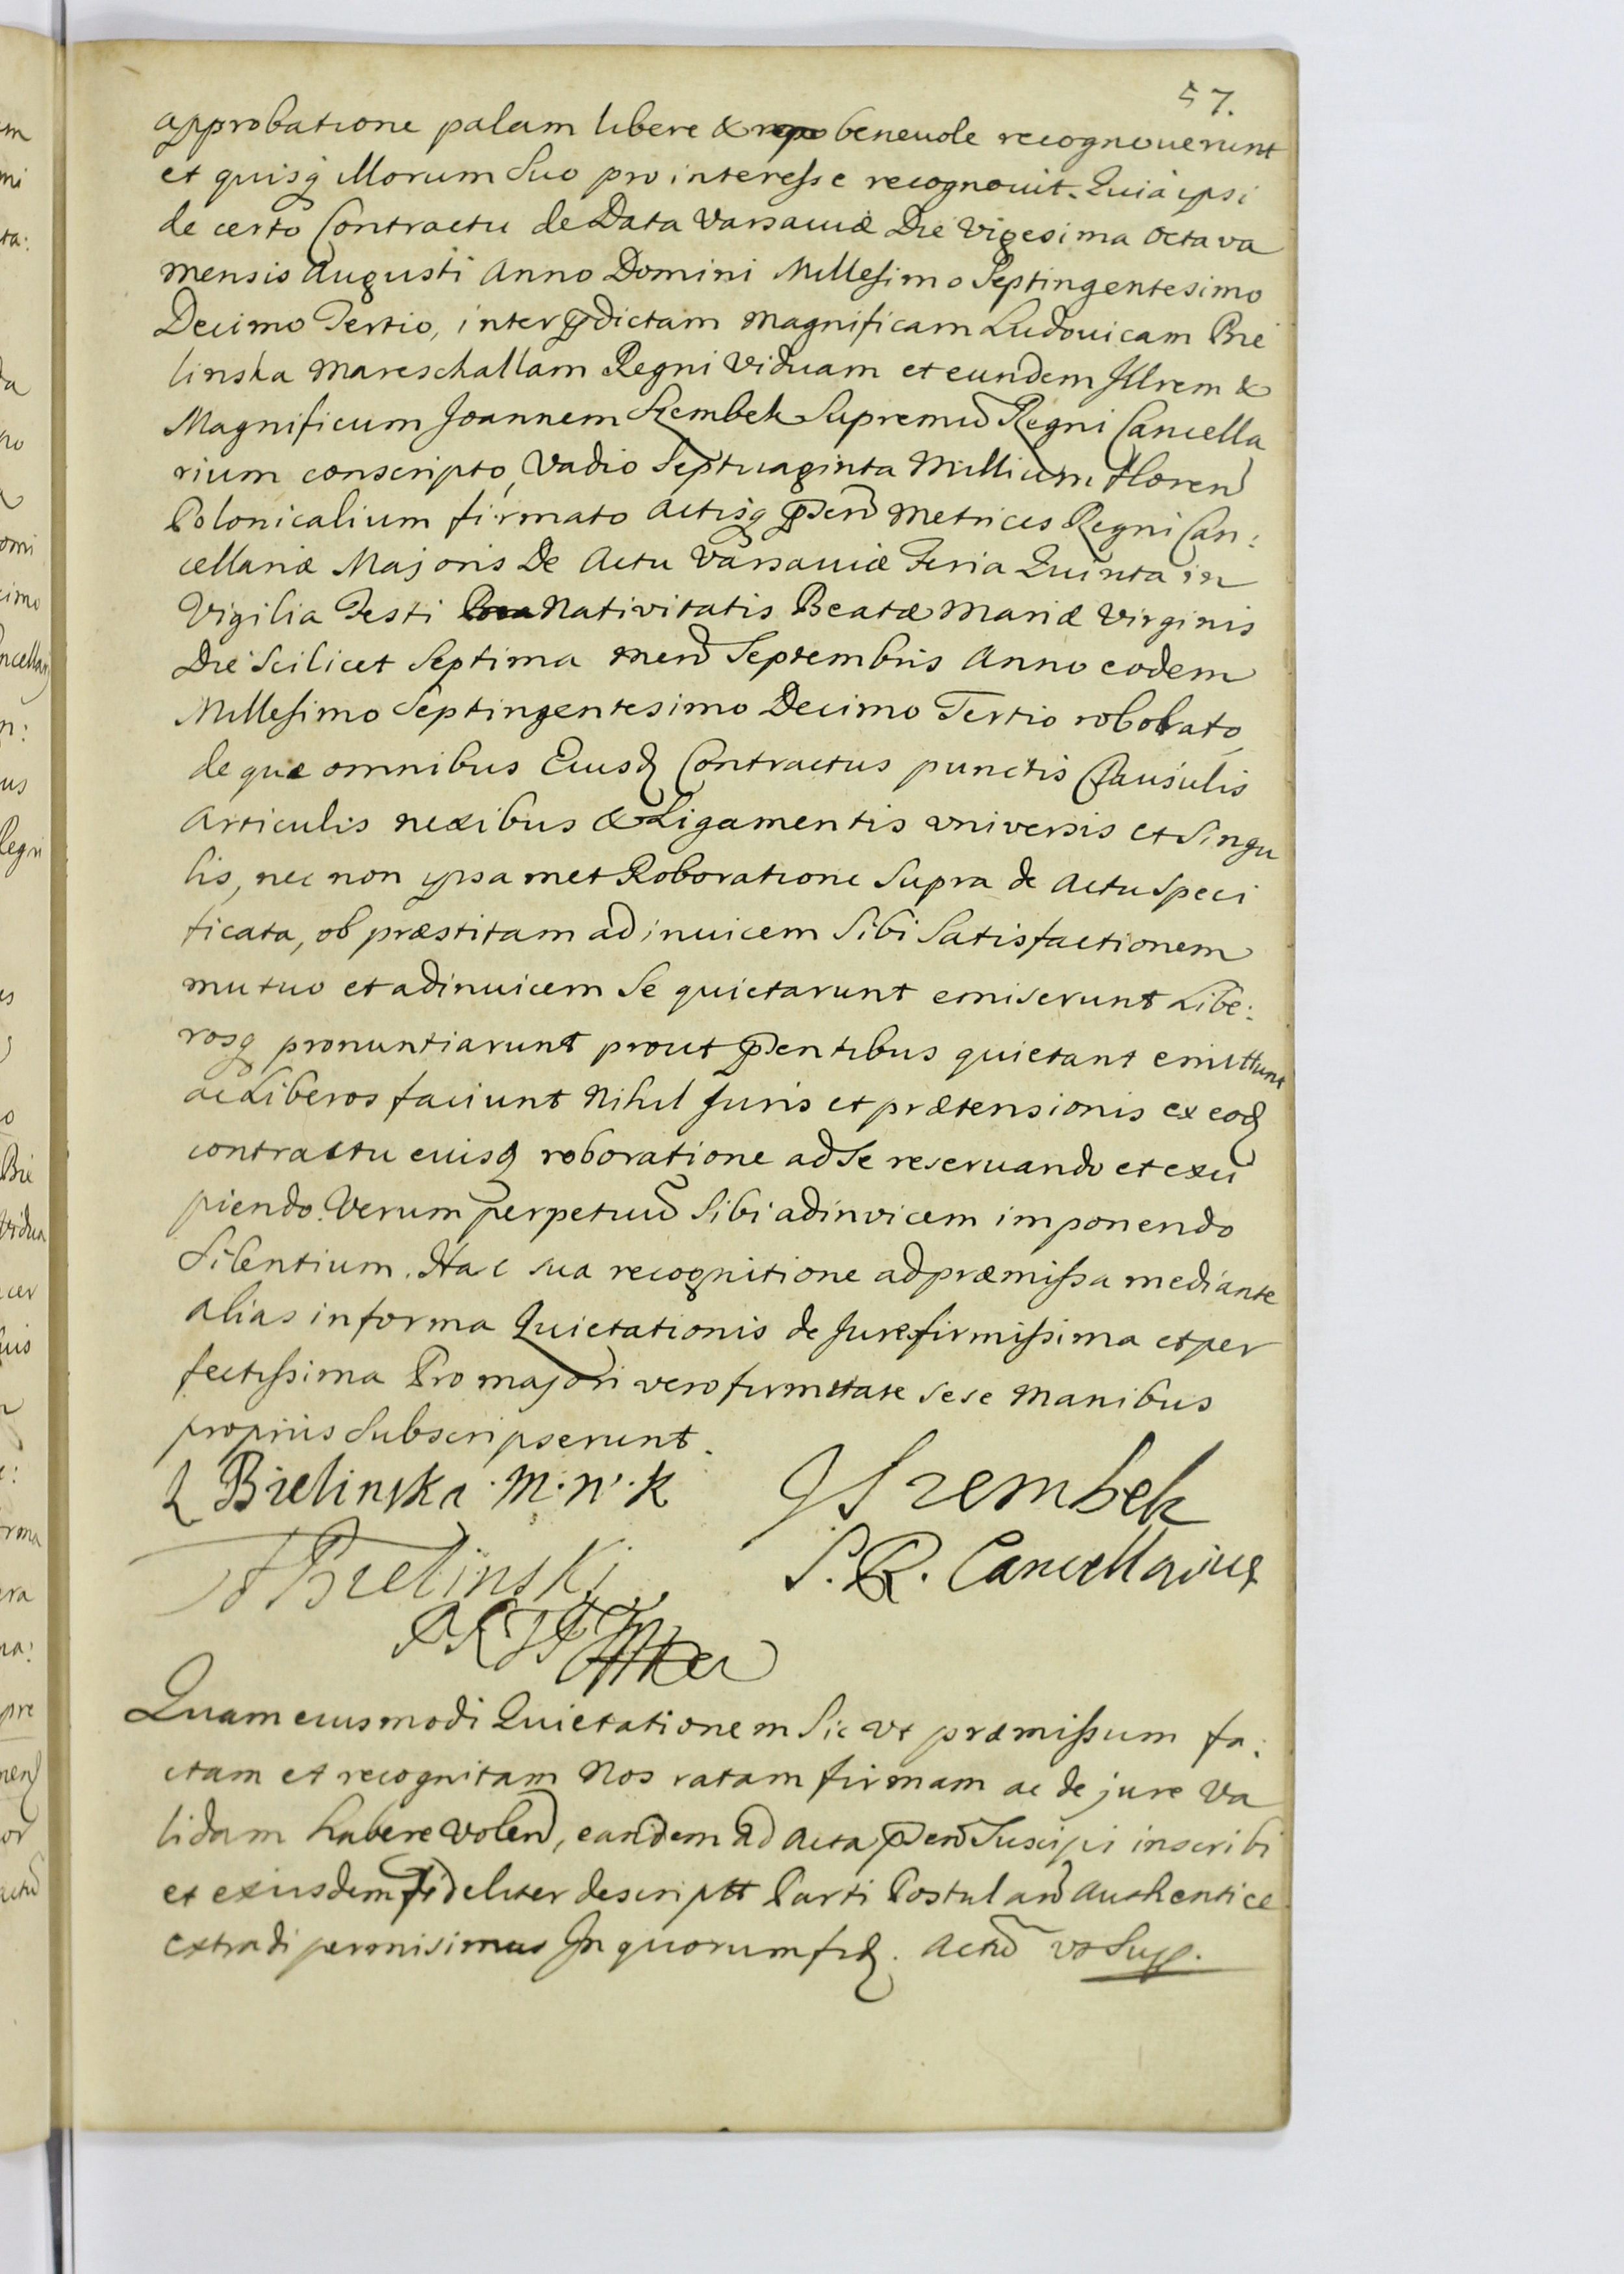 57.
approbatione palam libere & benevole recognoverunt
et quisq illorum Suo pro interesse recognovit. Quia ipsi
de certo Contractu de Data Varsaviæ Die Vigesima Octava
mensis Augusti Anno Domini Millesimo Septingentesimo
Decimo Tertio, inter pdictam Magnificam Ludovicam Bie
linska Mareschallam Regni Viduam et eundem Illrem &
Magnificum Joannem Szembek Supremu Regni Cancella
rium conscripto, Vadio Septuaginta Millium Floren
Polonicalium firmato Actisq pñ Metrices Regni Can:
cellariæ Majoris De Actu Varsaviæ Feria Quinta in
Vigilia Festi Nativitatis Beatæ Mariæ Virginis
Die Scilicet Septima men Septembris Anno eodem
Millesimo Septingentesimo Decimo Tertio roborato,
de quæ omnibus Eiusd Contractus punctis Clausulis
Articulis nexibus & Ligamentis universis et Singu
lis, nec non ipsamet Roboratione Supra de Actu Speci
ficata, ob præstitam adinvicem Sibi Satisfactionem
mutuo et adinvicem Se quietarunt emiserunt Libe:
rosq pronuntiarunt prout pñtibus quietant emittunt
ac Liberos faciunt Nihil Juris et prætensionis ex eod
contractu eiusq roboratione ad Se reservando et exci
piendo. Verum perpetuu Sibi adinvicem imponendo
Silentium. Hac sua recognitione ad præmissa mediante
alias in forma Quietationis de Jure firmissima et per
fectissima Pro majori vero firmitate sese Manibus
propriis Subscripserunt.
L Bielinska. M. W. K
JSzembek
Bielinski
S. R. Cancellarius
Quam eiusmodi Quietationem Sic ut præmissum fa:
ctam et recognitam Nos ratam firmam ac de jure Va
lidam habere Volen, eandem ad Acta pñ Suscipi inscribi
et exiisdem fideliter descriptt Parti Postulan Authentice
extradi permisimus In quorum fid. Actu ut Sup.